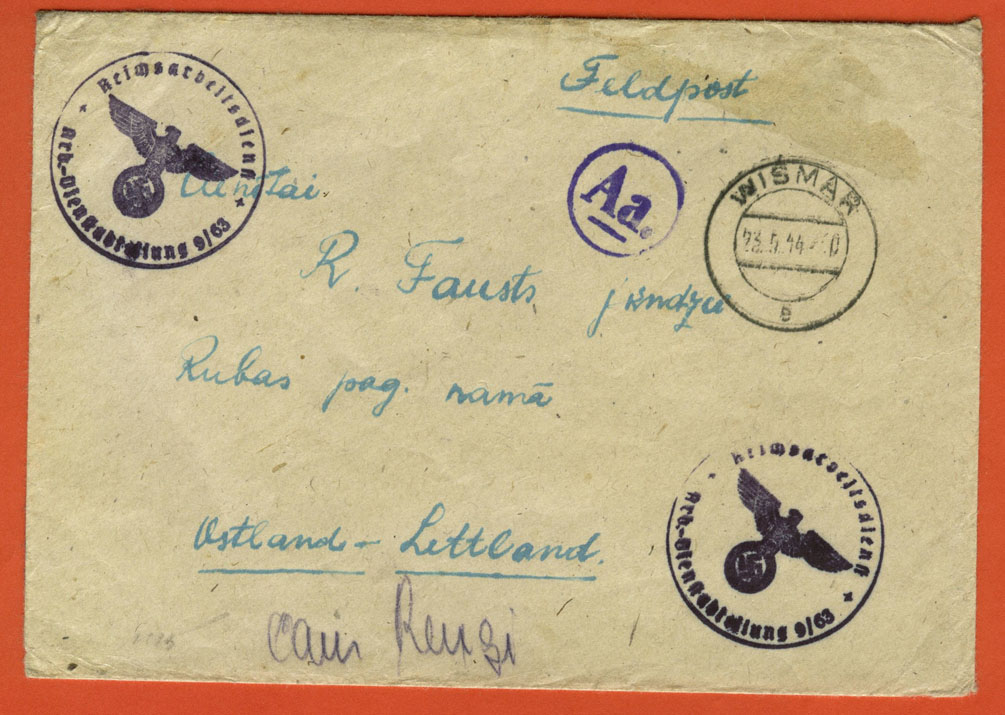 Feldpost
Reichsarbeitsdienst
Arb.-Dienstabteilung 9/63
Aa.
WISMAR
23.5.44
R. Fausts
Rubas pag. namā
Ostland – Lettland.
Reichsarbeitsdienst
Arb.-Dienstabteilung 9/63